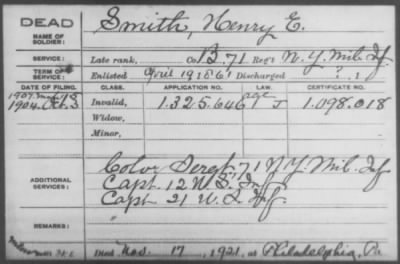 DEAD
NAME OF SOLDIER: Smith, Henry E.
SERVICE: Late rank, Co. B. 71 Reg't N. Y. Mil. Inf.
TERM OF SERVICE: Enlisted April 19 1861 Discharged ?
DATE OF FILING. CLASS. APPLICATION NO. LAW. CERTIFICATE NO.
1907
1904. Oct. 3 Invalid, 1.325.646 age J 1.098.018
Widow,
Minor,
ADDITIONAL SERVICES: Color Sergt 71 N. Y. Mil. Inf
Capt. 12 U.S. Inf
Capt 21 U.S. Inf.
REMARKS: "
Died Nov. 17, 1921, at Philadelphia, Pa.